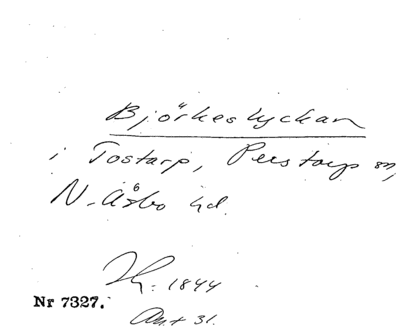 Björkeslyckan
i Tostarp, Perstorps sn,
N. Åsbo hd.
1844
Nr 7327.
Ant 31.